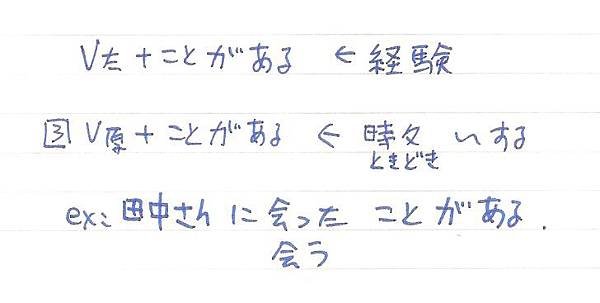 Vた+ことがある ← 経験
図 V原+ことがある ← 時々 〃する
ときどき
ex: 田中さんに会ったことがある.
会う